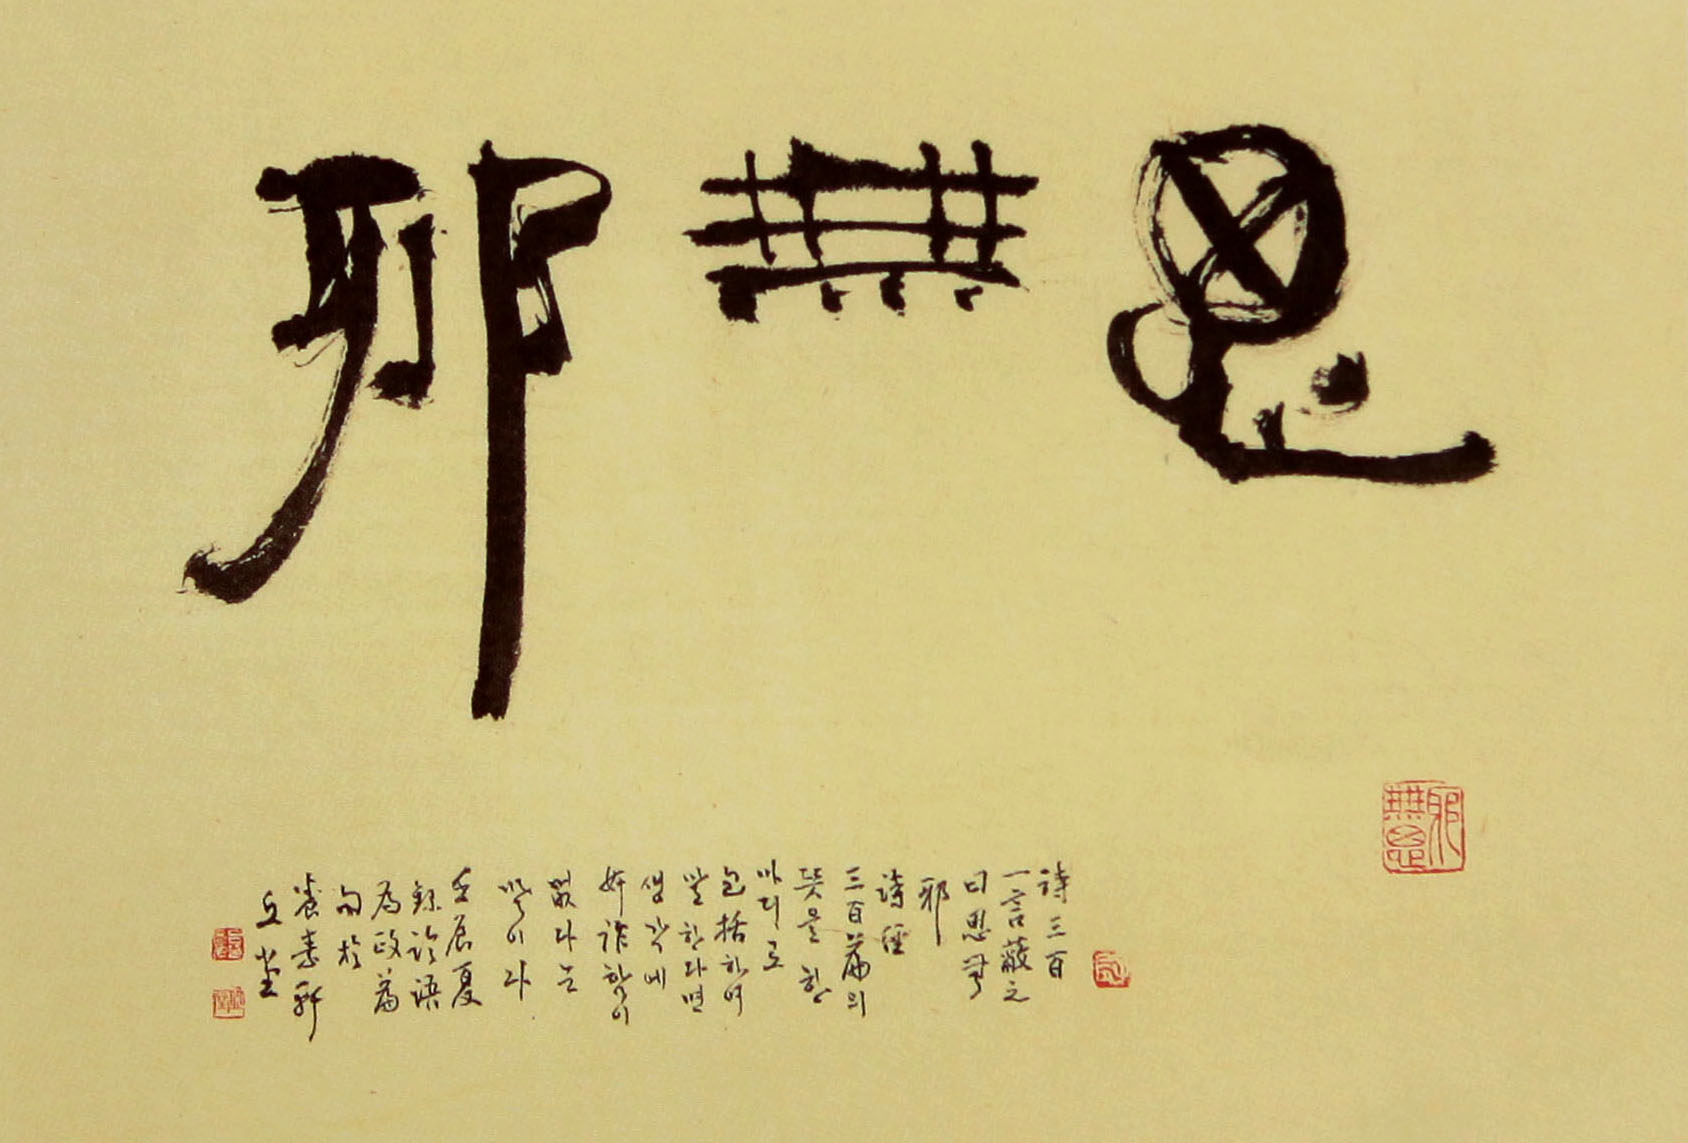 思無邪
詩三百
一言蔽之
曰思無
邪
詩經
三百篇의
뜻을 한
마디로
包括하여
말한다면
생각에
奸詐함이
없다는
말이다
壬辰夏
錄論語
爲政篇
句於
養素軒
丘堂
邪無思